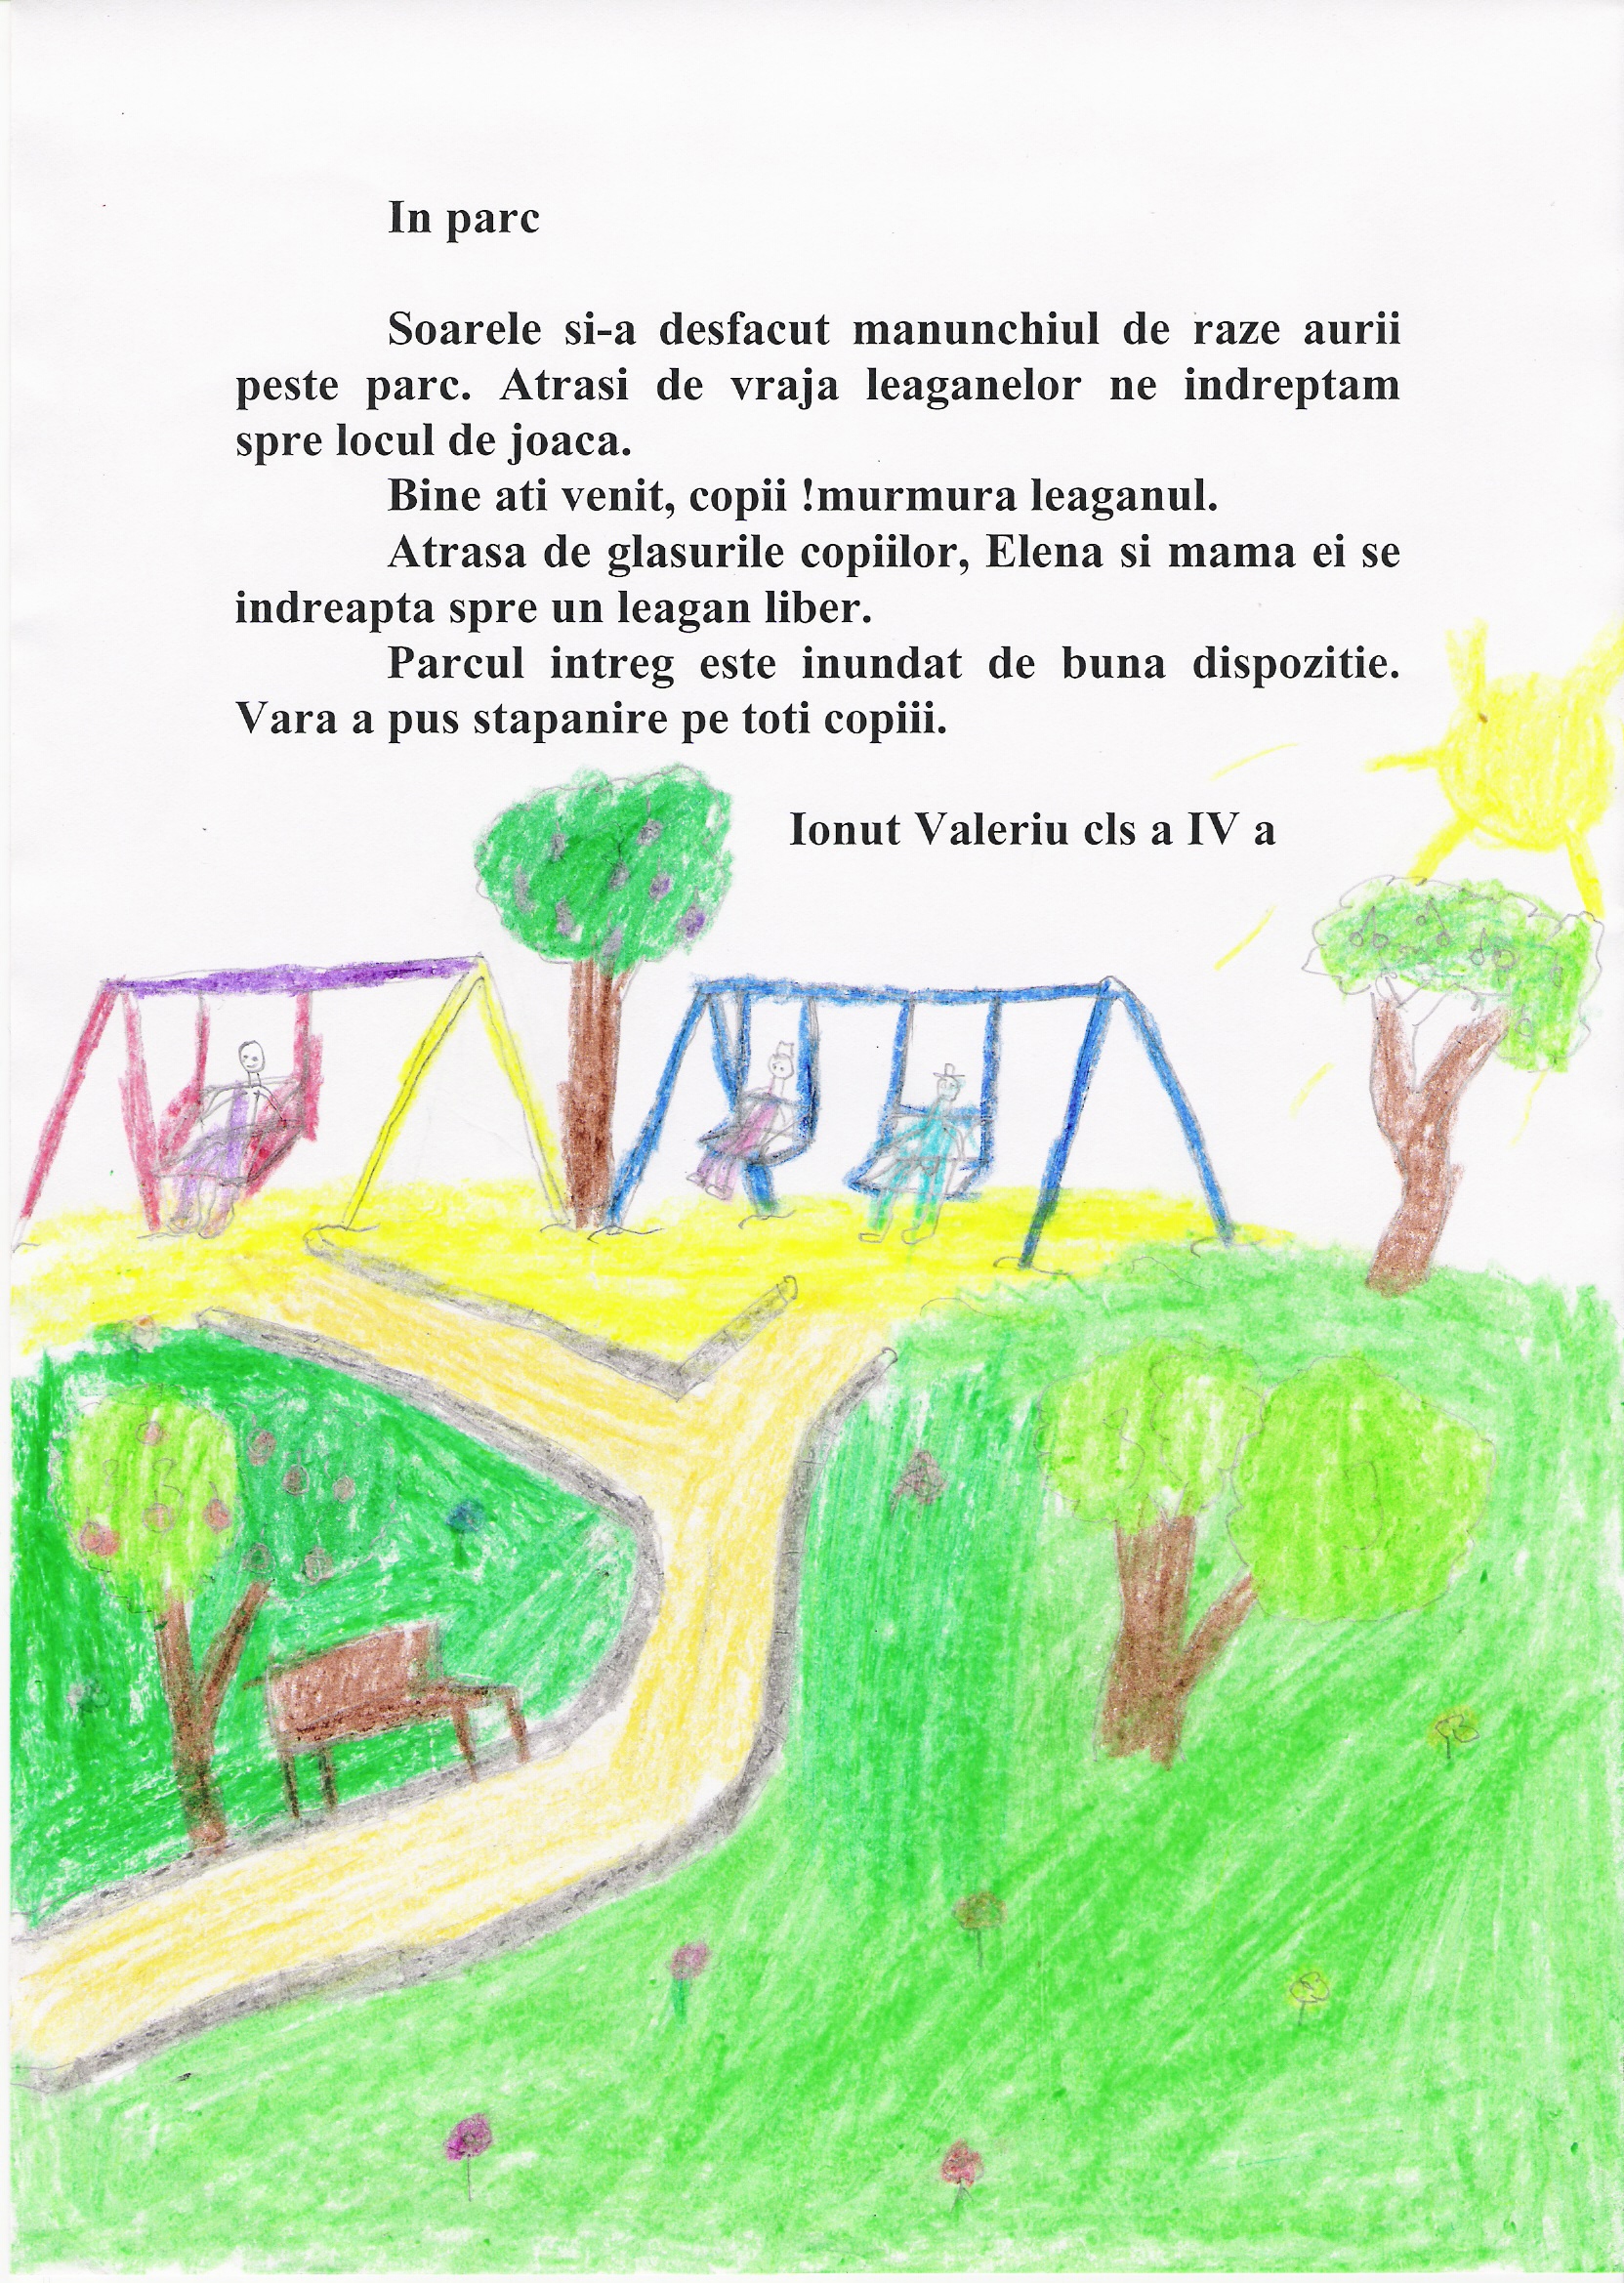 In parc
Soarele si-a desfacut manunchiul de raze aurii
peste parc. Atrasi de vraja leaganelor ne indreptam
spre locul de joaca.
Bine ati venit, copii !murmura leaganul.
Atrasa de glasurile copiilor, Elena si mama ei se
indreapta spre un leagan liber.
Parcul intreg este inundat de buna dispozitie.
Vara a pus stapanire pe toti copiii.
Ionut Valeriu cls a IV a